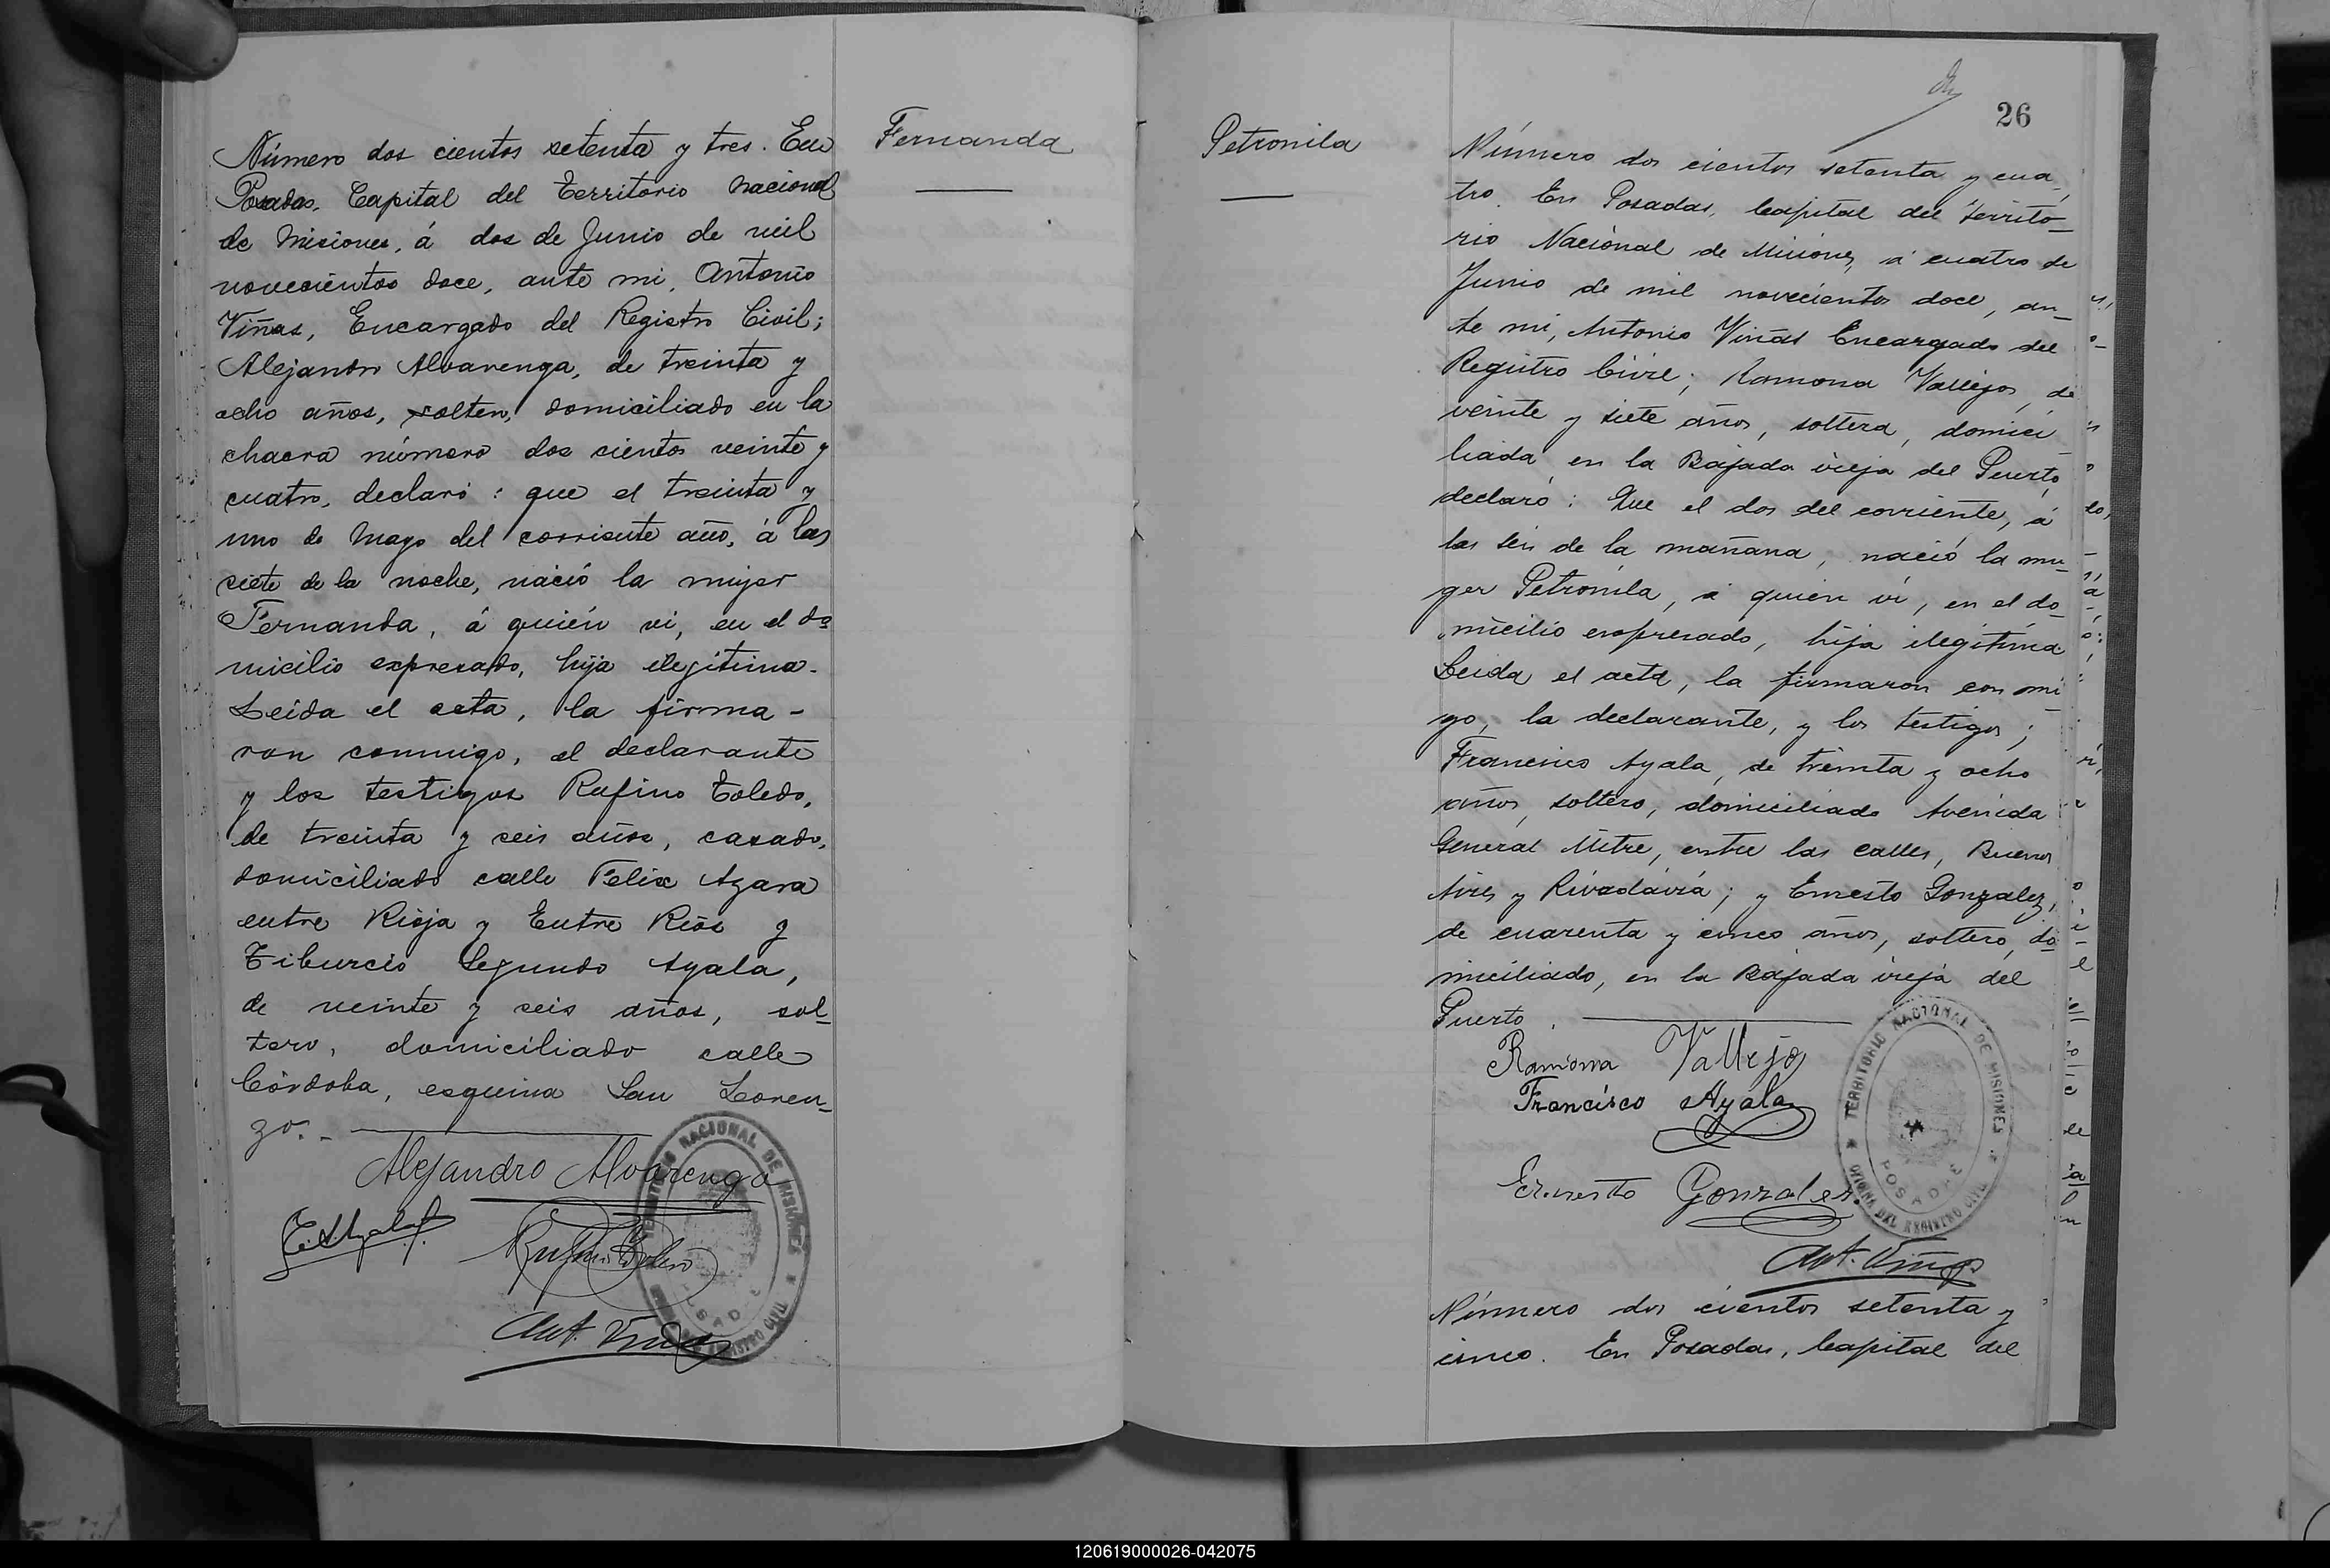 Fernanda
Número dos cientos setenta y tres. En
Posadas, Capital del Territorio Nacional
de Misiones, á dos de Junio de mil
novecientos doce, ante mi, Antonio
Viñas, Encargado del Registro Civil;
Alejandro Alvarenga, de treinta y
ocho años, soltero, domiciliado en la
chacra número dos cientos veinte y
cuatro, declaró: que el treinta y
uno de Mayo del corriente año, á las
siete de la noche, nació la mujer
Fernanda, á quién vi, en el do
micilio expresado, hija ilegitima.
Leida el acta, la firma-
ron conmigo, el declarante
y los testigos Rufino Toledo,
de treinta y seis años, casado,
domiciliado calle Felix Azara
entre Rioja y Entre Rios y
Tiburcio Segundo Ayala,
de veinte y seis años, sol-
tero, domiciliado calle
Córdoba, esquina San Loren-
zo.-
Alejandro Alvarenga
Rufino Toledo
Ant. Viñas
TERRITORIO NACIONAL DE MISIONES
REGISTRO CIVIL
26
Petronila
Número dos cientos setenta y cua-
tro. En Posadas, Capital del Territo-
rio Nacional de Misiones, á cuatro de
Junio de mil novecientos doce, an-
te mi, Antonio Viñas Encargado del
Registro Civil; Ramona Vallejos, de
veinte y siete años, soltera, domici
liada en la Bajada vieja del Puerto,
declaró: Que el dos del corriente, á
las seis de la mañana, nació la mu-
ger Petronila, á quien vi, en el do-
micilio expresado, hija ilegitima.
Leida el acta, la firmaron con mi
go, la declarante, y los testigos;
Francisco Ayala, de treinta y ocho
años, soltero, domiciliado Avenida
General Mitre, entre las calles, Buenos
Aires y Rivadavia; y Ernesto Gonzalez,
de cuarenta y cinco años, soltero, do
miciliado, en la Bajada vieja del
Puerto.
Ramona Vallejo
Francisco Ayala
Ernesto Gonzalez.
Ant. Viñas
TERRITORIO NACIONAL DE MISIONES
OFICINA DEL REGISTRO CIVIL
POSADAS
Número dos cientos setenta y
cinco. En Posadas, Capital del
120619000026-042075